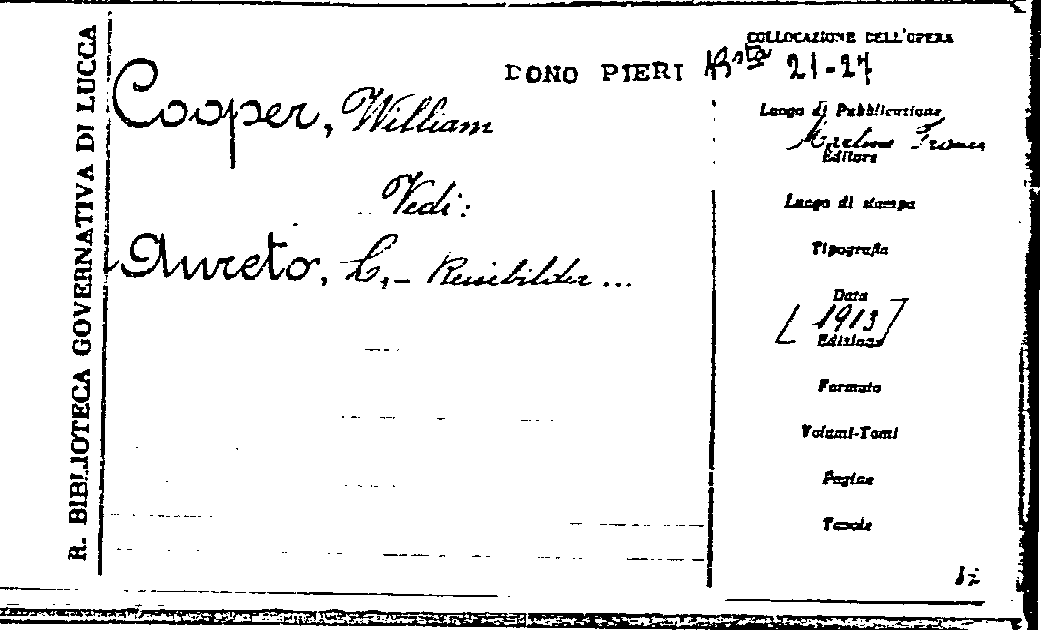 R. BIBLIOTECA GOVERNATIVA DI LUCCA
COLLOCAZIONE DELL'OPERA
DONO PIERI Bsta 21-27
Cooper, William
Vedi:
Aureto, L,- Reisebilder ...
Luogo di Pubblicazione
Editore
Luogo di stampa
Tipografia
Data
[1913]
Edizione
Formato
Volumi-Tomi
Pagine
Tavole